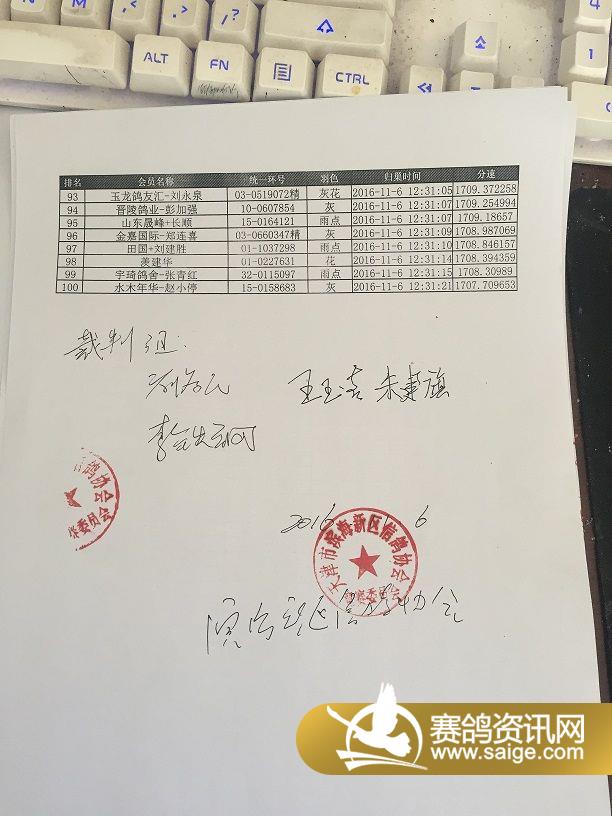 M < > ?
ALT FN CTRL
4
1
排名 会员名称 统一环号 羽色 归巢时间 分速
93 玉龙鸽友汇-刘永泉 03-0519072精 灰花 2016-11-6 12:31:05 1709.372258
94 晋陵鸽业-彭加强 10-0607854 灰 2016-11-6 12:31:07 1709.254994
95 山东晟峰+长顺 15-0164121 雨点 2016-11-6 12:31:07 1709.18657
96 金嘉国际-郑连喜 03-0660347精 灰 2016-11-6 12:31:09 1708.987069
97 田国+刘建胜 01-1037298 雨点 2016-11-6 12:31:10 1708.846157
98 羡建华 01-0227631 花 2016-11-6 12:31:14 1708.394359
99 宇琦鸽舍-张青红 32-0115097 雨点 2016-11-6 12:31:15 1708.30989
100 水木年华-赵小停 15-0158683 灰 2016-11-6 12:31:21 1707.709653
裁判组:
王玉喜 朱建旗
鸽协会
委员会
2016 6
天津市滨海新区信鸽协会
竞赛委员会
滨海新区信鸽协会
赛鸽资讯网
www.saige.com